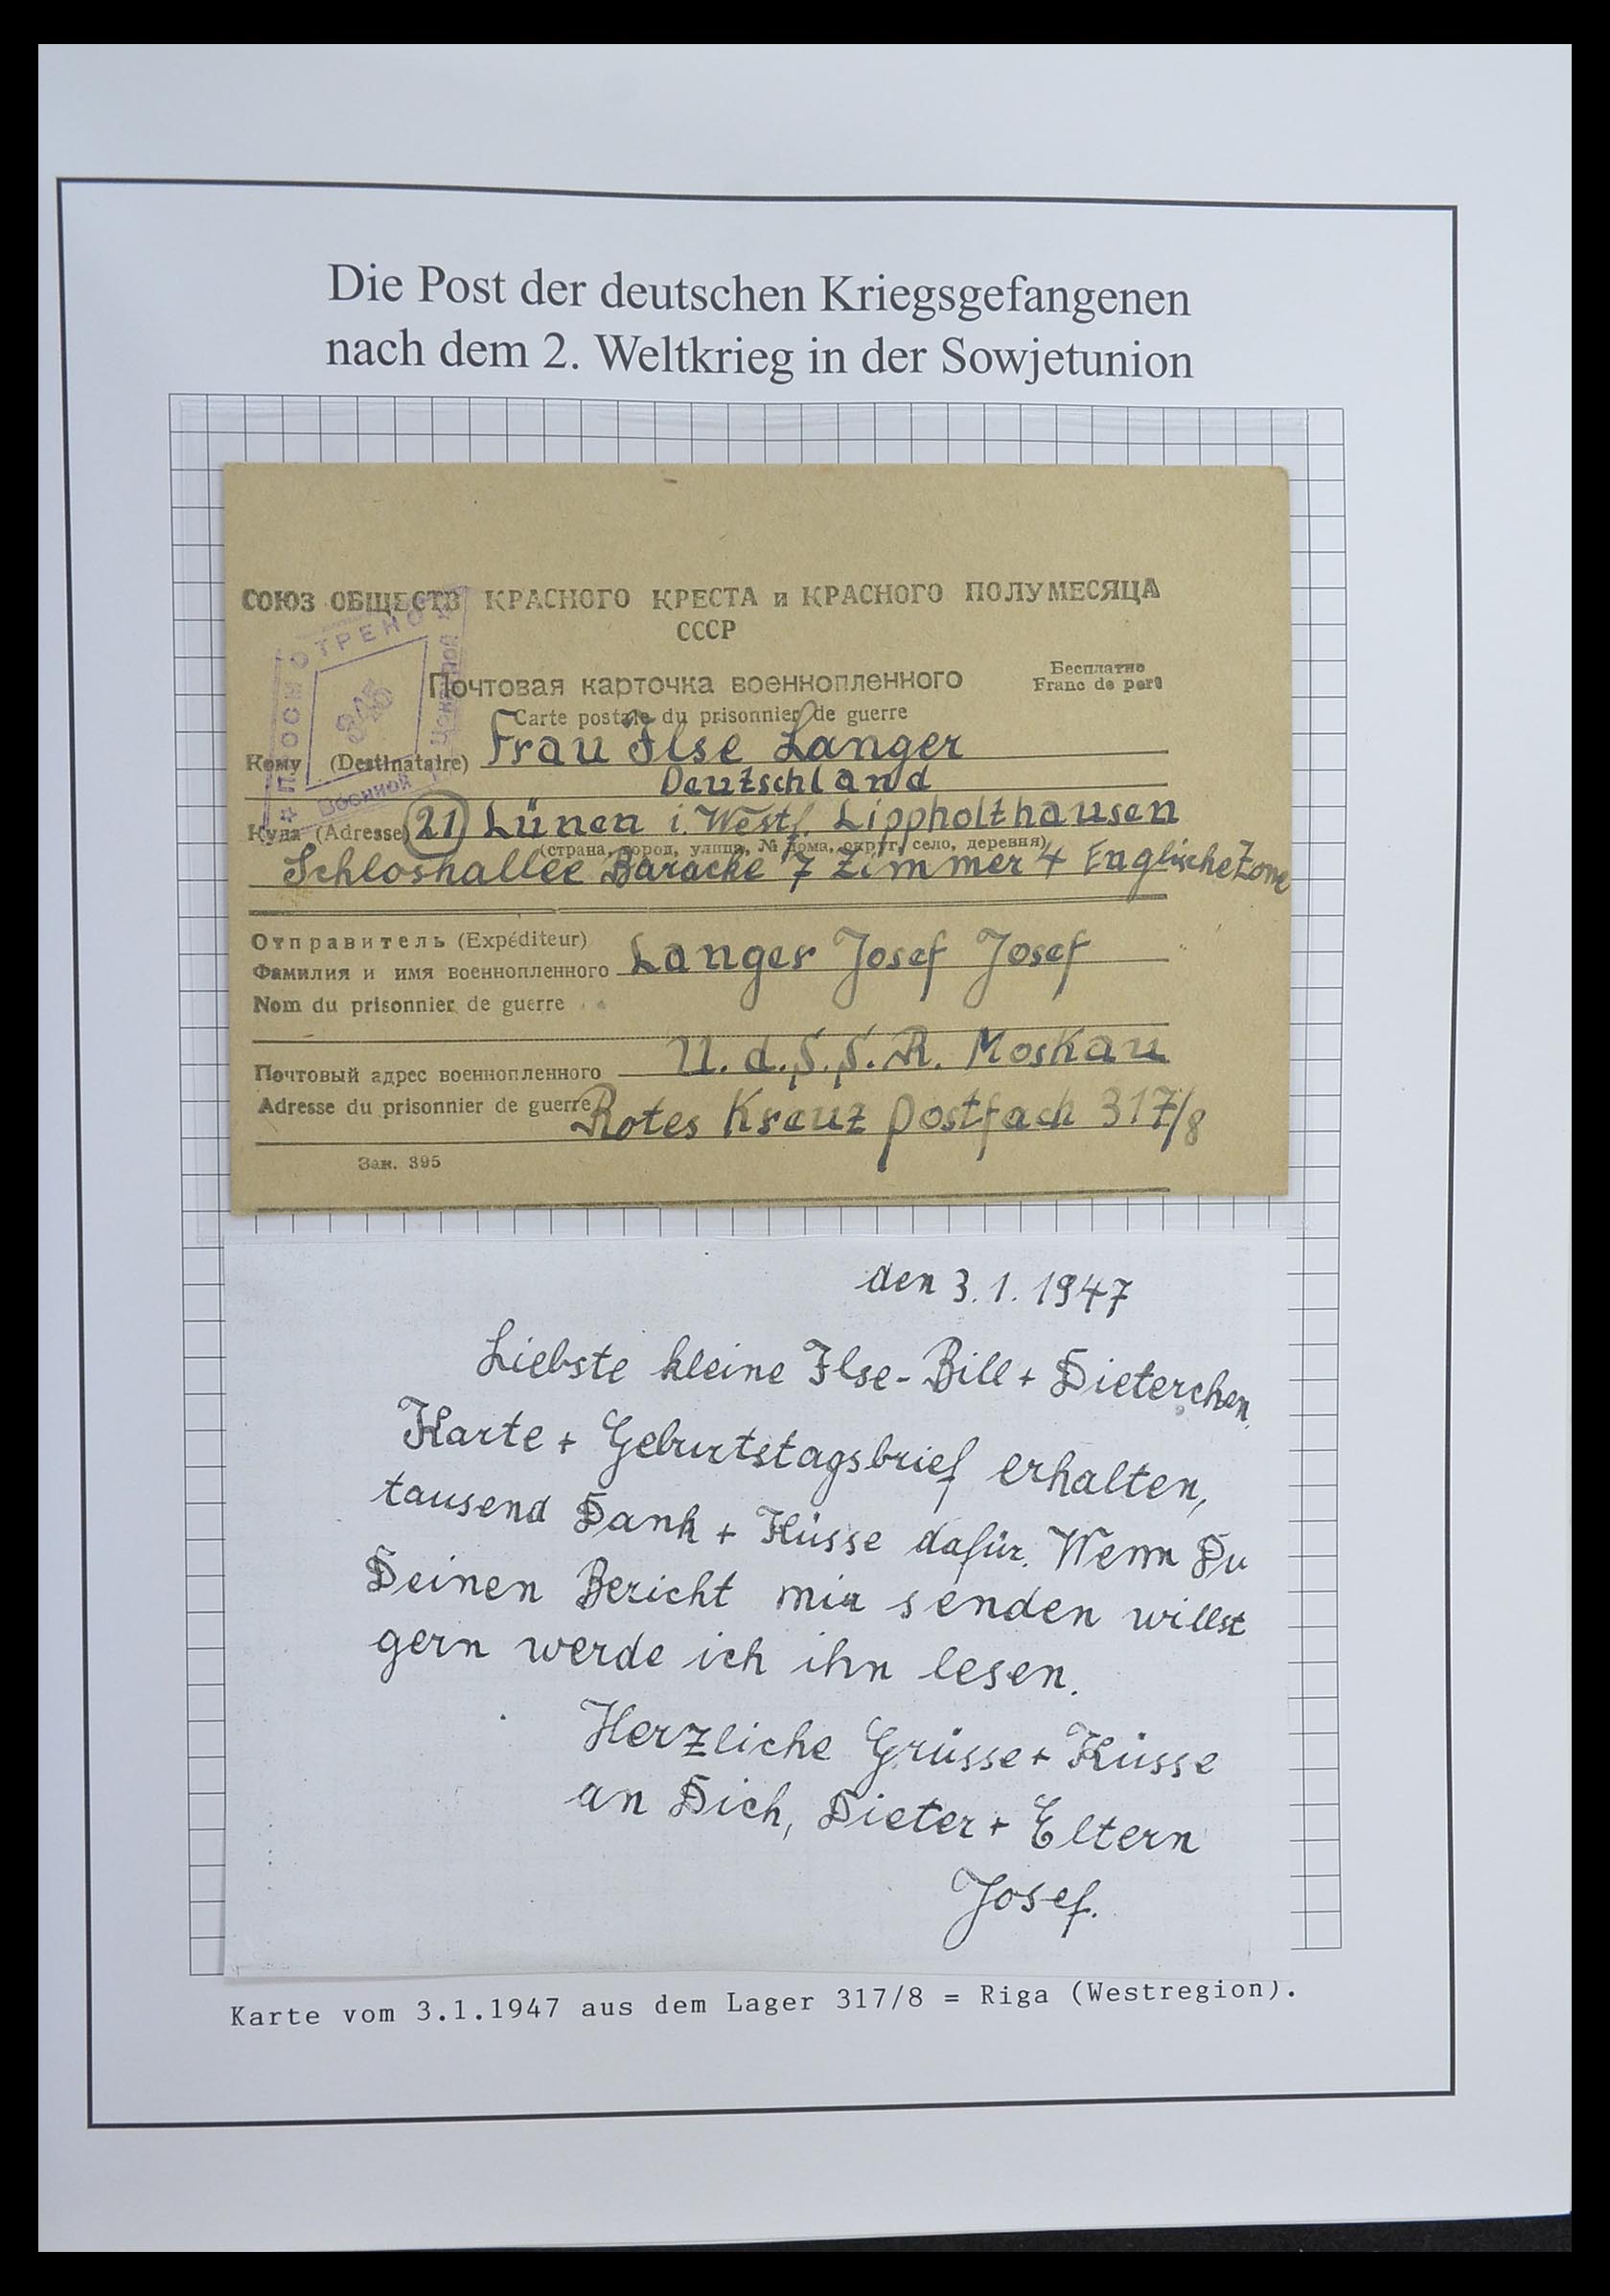 Die Post der deutschen Kriegsgefangenen
nach dem 2. Weltkrieg in der Sowjetunion
СОЮЗ ОБЩЕСТВ КРАСНОГО КРЕСТА и КРАСНОГО ПОЛУМЕСЯЦА
СССР
Почтовая карточка военнопленного
Бесплатно
Franc de port
Carte postale du prisonnier de guerre
Кому (Destinataire) Frau Ilse Langer
Deutschland
Куда (Adresse) 21 Lünen i. Westf. Lippholthausen
(страна, город, улица, № дома, округ, село, деревня)
Schloshallee Baracke 7 Zimmer 4 Englische Zone
Отправитель (Expéditeur)
Фамилия и имя военнопленного Langer Josef Josef
Nom du prisonnier de guerre
U.d.S.S.R. Moskau
Почтовый адрес военнопленного
Adresse du prisonnier de guerre Rotes Kreuz postfach 317/8
Зак. 395
den 3.1.1947
Liebste kleine Ilse-Bill + Dieterchen.
Karte + Geburtstagsbrief erhalten,
tausend Dank + Küsse dafür. Wenn Du
Deinen Bericht mir senden willst
gern werde ich ihn lesen.
Herzliche Grüsse + Küsse
an Dich, Dieter + Eltern
Josef.
Karte vom 3.1.1947 aus dem Lager 317/8 = Riga (Westregion).